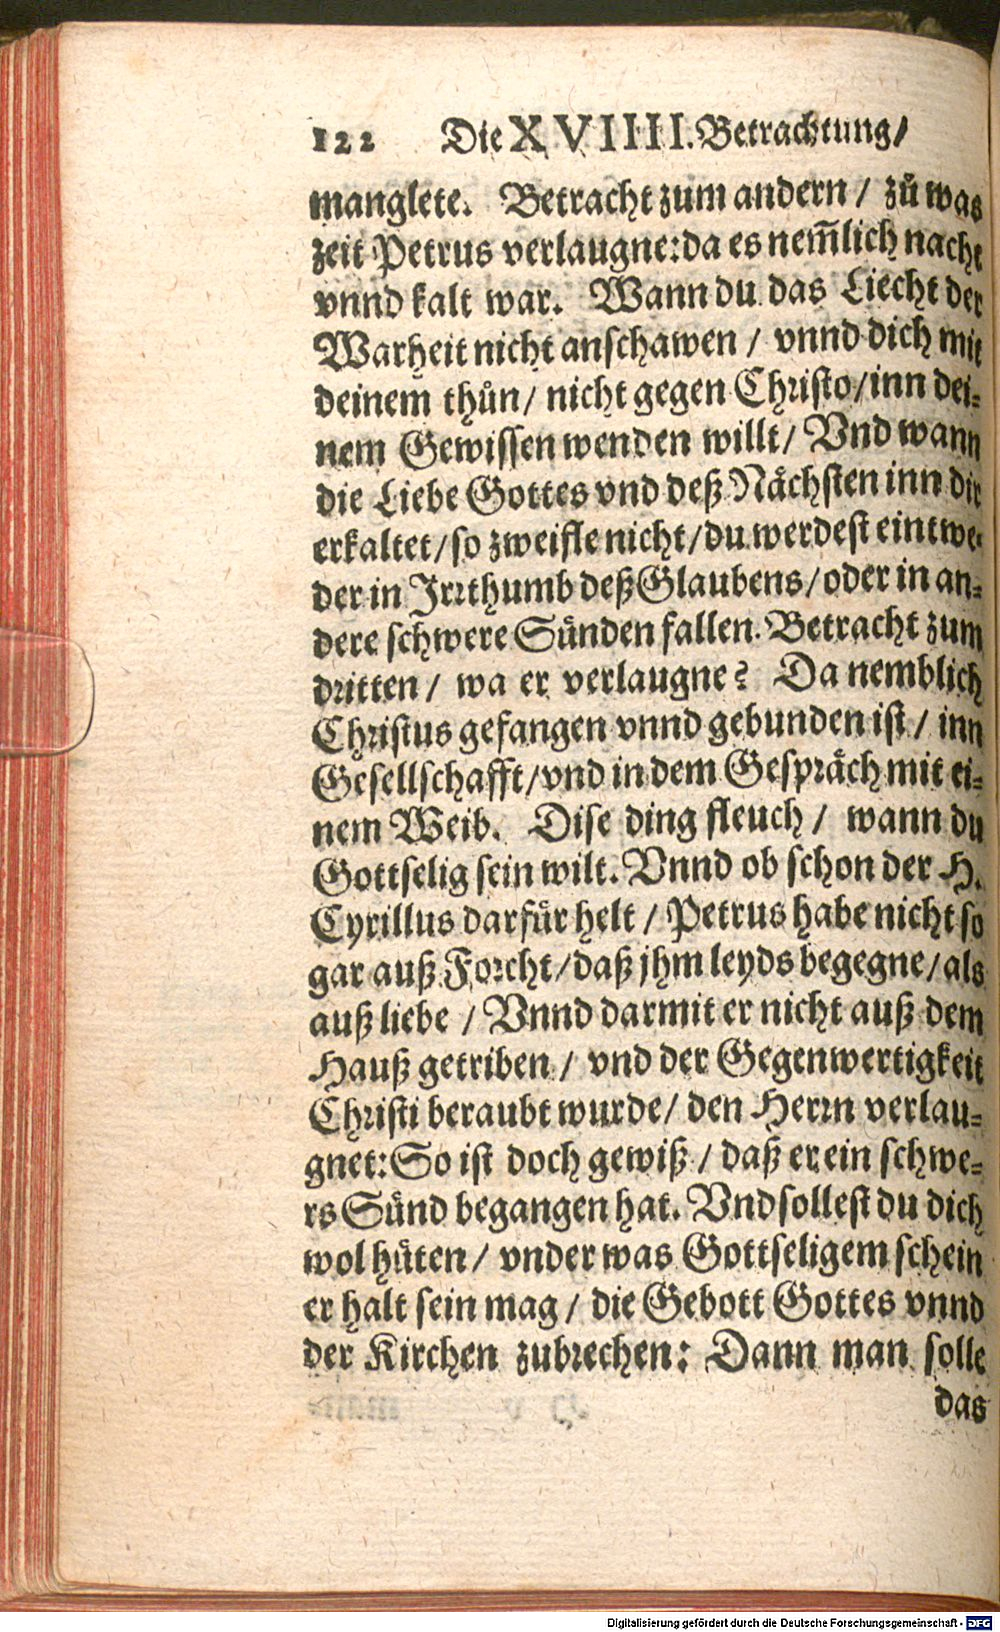 122 Die XVIIII. Betrachtung/
manglete. Betracht zum andern / zů was
zeit Petrus verlaugne: da es nem̃lich nacht
vnnd kalt war. Wann du das Liecht der
Warheit nicht anschawen / vnnd dich mit
deinem thůn / nicht gegen Christo / inn dei-
nem Gewissen wenden willt / Vnd wann
die Liebe Gottes vnd deß Nächsten inn dir
erkaltet / so zweifle nicht / du werdest eintwe-
der in Irrthumb deß Glaubens / oder in an-
dere schwere Sünden fallen. Betracht zum
dritten / wa er verlaugne? Da nemblich
Christus gefangen vnnd gebunden ist / inn
Gesellschafft / vnd in dem Gespräch mit ei-
nem Weib. Dise ding fleuch / wann du
Gottselig sein wilt. Vnnd ob schon der H.
Cyrillus darfür helt / Petrus habe nicht so
gar auß Forcht / daß jhm leyds begegne / als
auß liebe / Vnnd darmit er nicht auß dem
Hauß getriben / vnd der Gegenwertigkeit
Christi beraubt wurde / den Herrn verlau-
gnet: So ist doch gewiß / daß er ein schwe-
rs Sünd begangen hat. Vnd sollest du dich
wol hüten / vnder was Gottseligem schein
er halt sein mag / die Gebott Gottes vnnd
der Kirchen zubrechen: Dann man solle
das
Digitalisierung gefördert durch die Deutsche Forschungsgemeinschaft - DFG